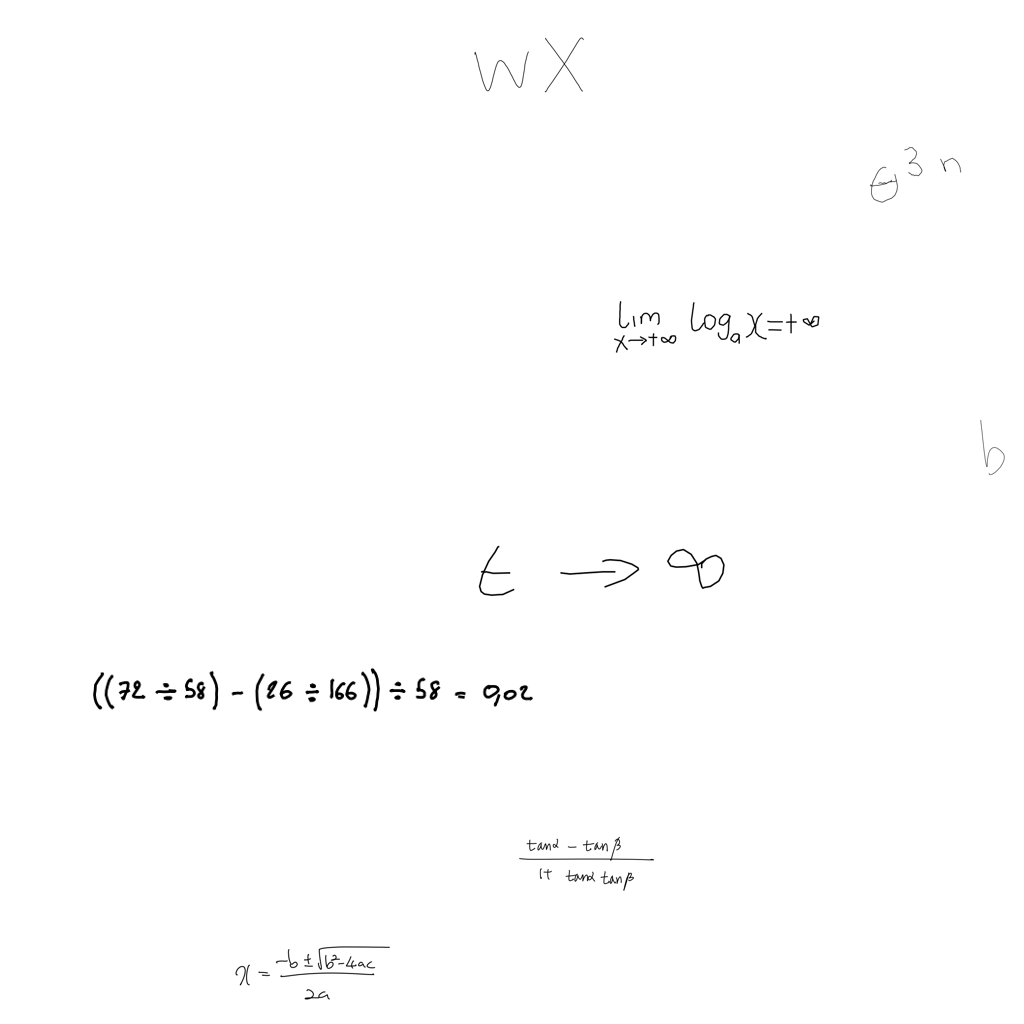 w X
θ³ n
lim x→+∞ logₐ x = +∞
b
t → ∞
((72 ÷ 58) - (26 ÷ 166)) ÷ 58 = 0,02
tanα - tanβ
1+ tanα tanβ
x = -b ± √b²-4ac
2a